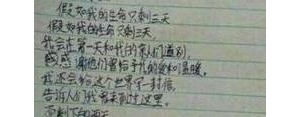 假如我的生命只剩三天
假如我的生命只剩三天,
我会在第一天和我的亲人们道别,
感谢他们曾给予我的爱和温暖。
我还会给这个世界写一封信,
告诉人们我曾来到过这里。
而剩下的两天